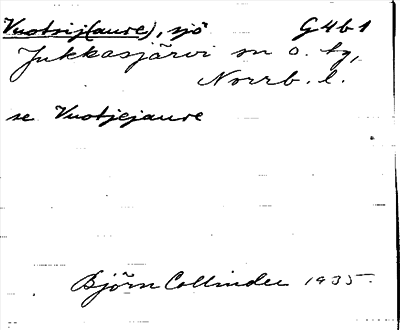 Vuotsij(aure), sjö G4b1
Jukkasjärvi sn o. tg,
Norrb. l.
se Vuotjejaure
Björn Collinder 1935.